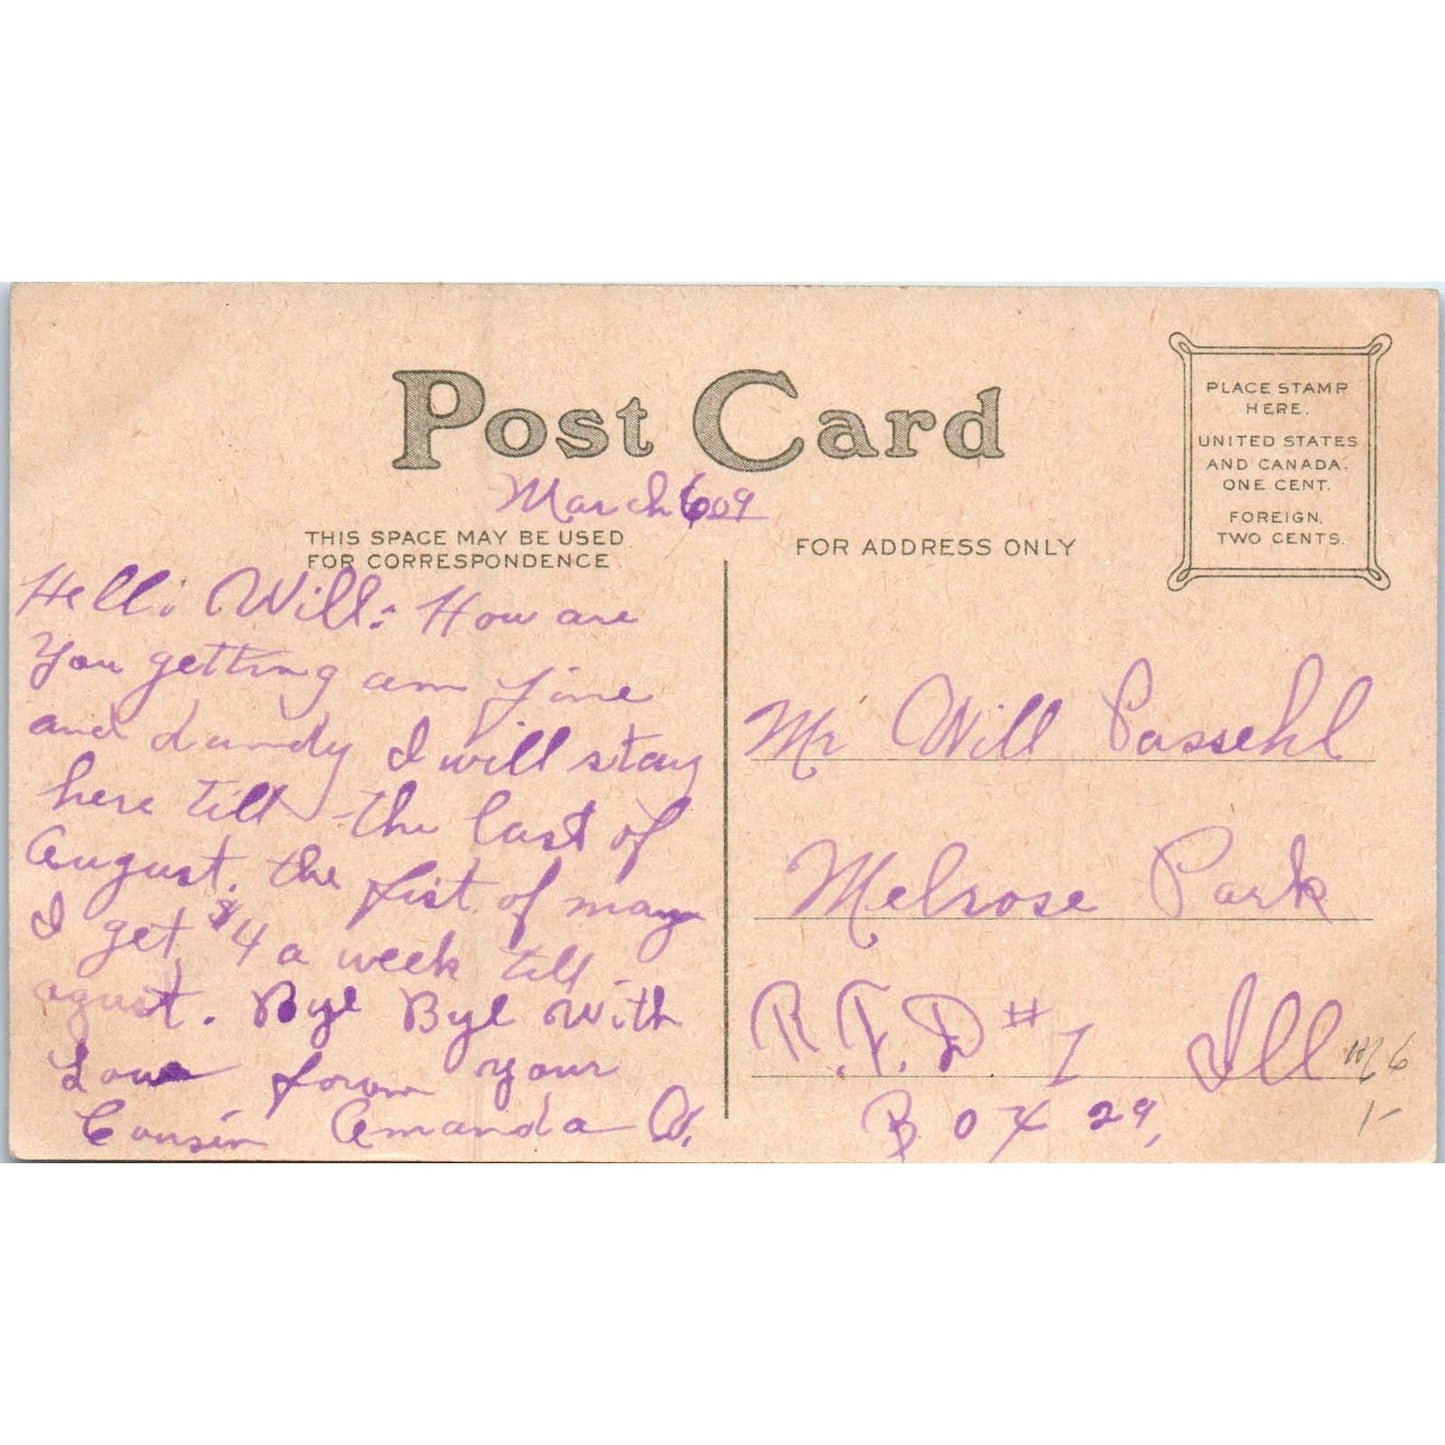 Post Card
March 6 09
THIS SPACE MAY BE USED
FOR CORRESPONDENCE
FOR ADDRESS ONLY
PLACE STAMP
HERE.
UNITED STATES
AND CANADA,
ONE CENT.
FOREIGN,
TWO CENTS.
Hello Will: How are
You getting am fine
and dandy I will stay
here till the last of
August. the fist of may
I get $4 a week till
agust. Bye Bye With
Love form your
Cousin Amanda
Mr Will Passehl
Melrose Park
R.F.D #1 Ill
Box 29,